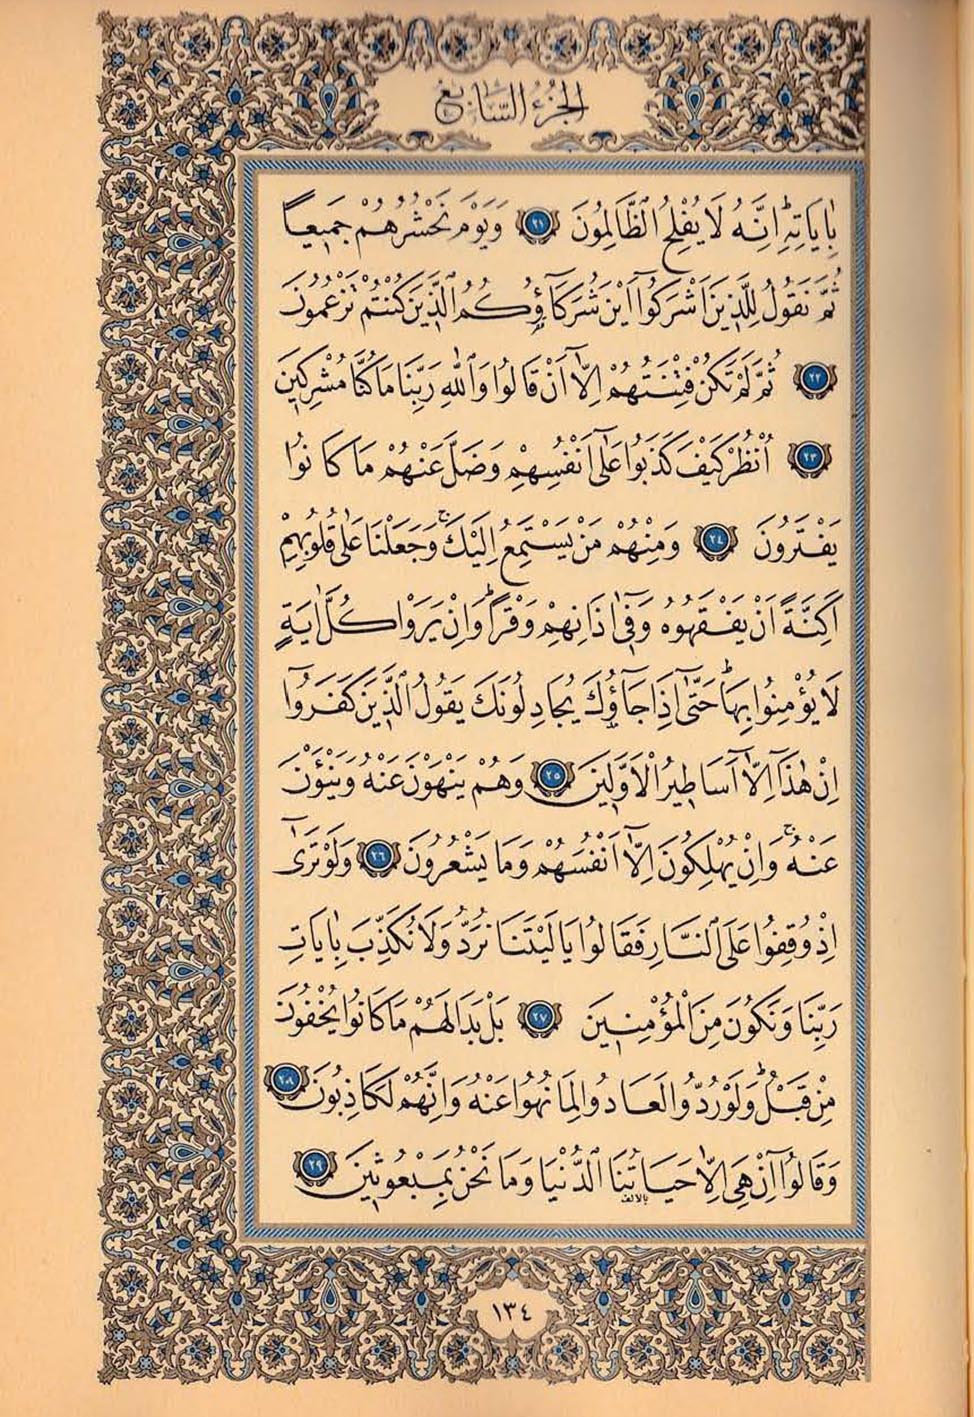 الجزء السابع
بِاٰيَاتِهِۜ اِنَّهُ لَا يُفْلِحُ الظَّالِمُونَ ﴿٢١﴾ وَيَوْمَ نَحْشُرُهُمْ جَمٖيعاً
ثُمَّ نَقُولُ لِلَّذٖينَ اَشْرَكُٓوا اَيْنَ شُرَكَٓاؤُ۬كُمُ الَّذٖينَ كُنْتُمْ تَزْعُمُونَ
﴿٢٢﴾ ثُمَّ لَمْ تَكُنْ فِتْنَتُهُمْ اِلَّٓا اَنْ قَالُوا وَاللّٰهِ رَبِّنَا مَا كُنَّا مُشْرِكٖينَ
﴿٢٣﴾ اُنْظُرْ كَيْفَ كَذَبُوا عَلٰٓى اَنْفُسِهِمْ وَضَلَّ عَنْهُمْ مَا كَانُوا
يَفْتَرُونَ ﴿٢٤﴾ وَمِنْهُمْ مَنْ يَسْتَمِعُ اِلَيْكَۚ وَجَعَلْنَا عَلٰى قُلُوبِهِمْ
اَكِنَّةً اَنْ يَفْقَهُوهُ وَفٖٓي اٰذَانِهِمْ وَقْراًۜ وَاِنْ يَرَوْا كُلَّ اٰيَةٍ
لَا يُؤْمِنُوا بِهَاۜ حَتّٰٓى اِذَا جَٓاؤُ۫كَ يُجَادِلُونَكَ يَقُولُ الَّذٖينَ كَفَرُٓوا
اِنْ هٰذَٓا اِلَّٓا اَسَاطٖيرُ الْاَوَّلٖينَ ﴿٢٥﴾ وَهُمْ يَنْهَوْنَ عَنْهُ وَيَنْـَٔوْنَ
عَنْهُۚ وَاِنْ يُهْلِكُونَ اِلَّٓا اَنْفُسَهُمْ وَمَا يَشْعُرُونَ ﴿٢٦﴾ وَلَوْ تَرٰٓى
اِذْ وُقِفُوا عَلَى النَّارِ فَقَالُوا يَا لَيْتَنَا نُرَدُّ وَلَا نُكَذِّبَ بِاٰيَاتِ
رَبِّنَا وَنَكُونَ مِنَ الْمُؤْمِنٖينَ ﴿٢٧﴾ بَلْ بَدَا لَهُمْ مَا كَانُوا يُخْفُونَ
مِنْ قَبْلُۜ وَلَوْ رُدُّوا لَعَادُوا لِمَا نُهُوا عَنْهُ وَاِنَّهُمْ لَكَاذِبُونَ ﴿٢٨﴾
وَقَالُٓوا اِنْ هِيَ اِلَّا حَيَاتُنَا الدُّنْيَا وَمَا نَحْنُ بِمَبْعُوثٖينَ ﴿٢٩﴾
بالالف
١٣٤